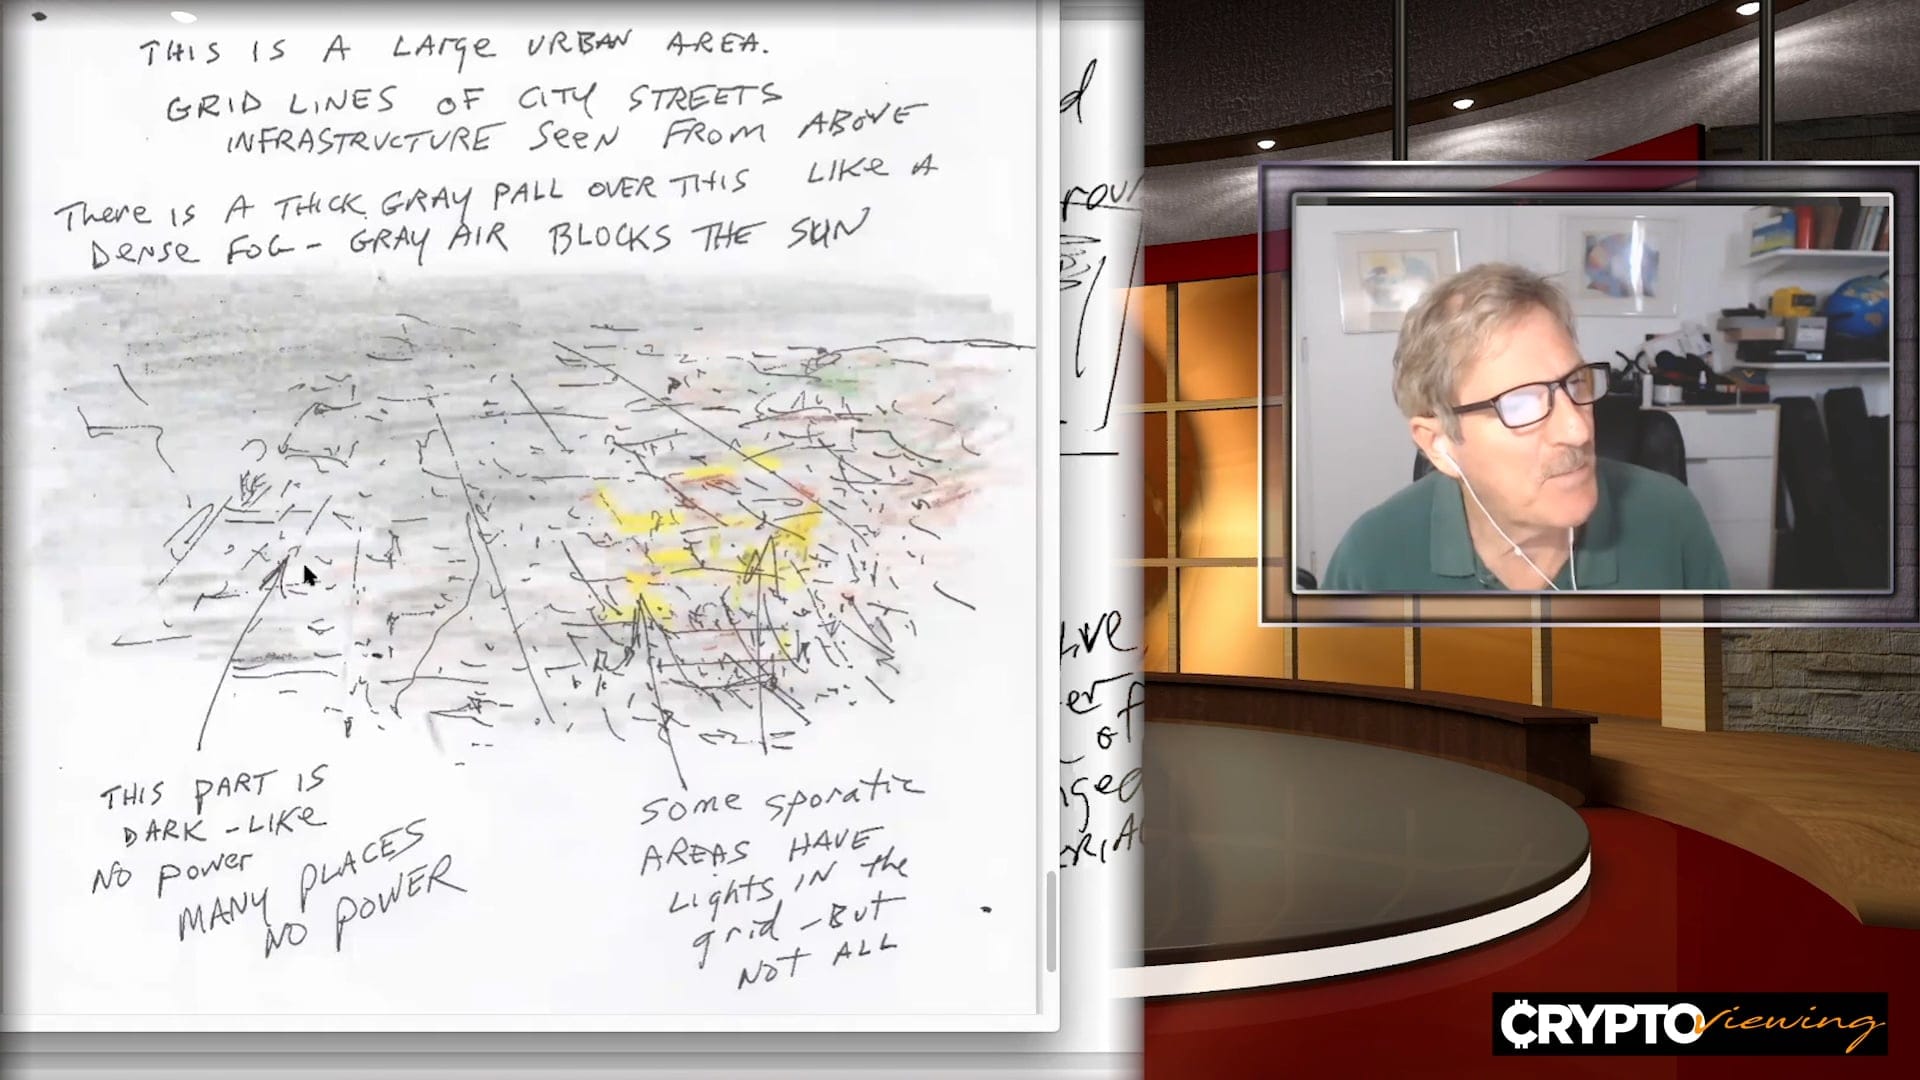 THIS IS A LARGE URBAN AREA.
GRID LINES OF CITY STREETS
INFRASTRUCTURE SEEN FROM ABOVE
There is A THICK GRAY PALL OVER THIS LIKE A
DENSE FOG - GRAY AIR BLOCKS THE SUN
THIS PART IS
DARK - LIKE
NO POWER
MANY PLACES
NO POWER
SOME SPORATIC
AREAS HAVE
Lights IN the
grid - BUT
NOT ALL
d
er
of
CRYPTOviewing